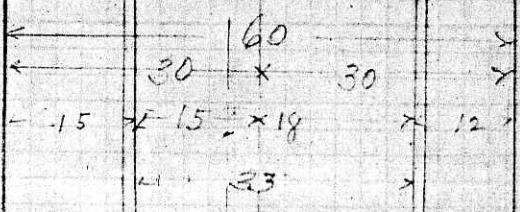 60
30 30
15 15 18 12
33